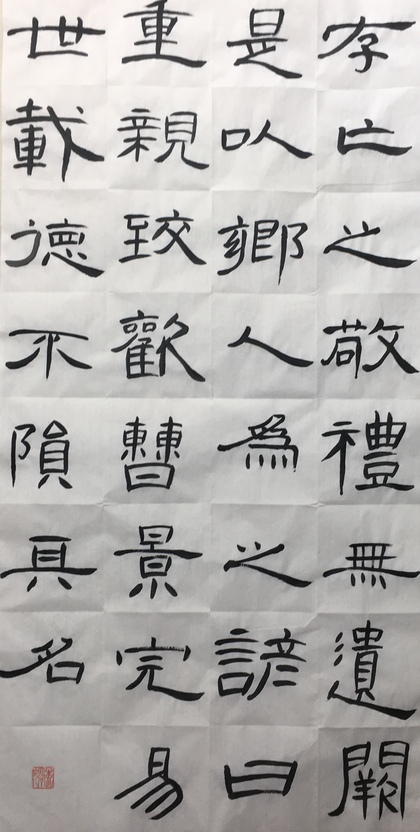 存亡之敬禮無遺闕
是以鄉人為之諺曰
重親致歡曹景完易
世載德不隕其名